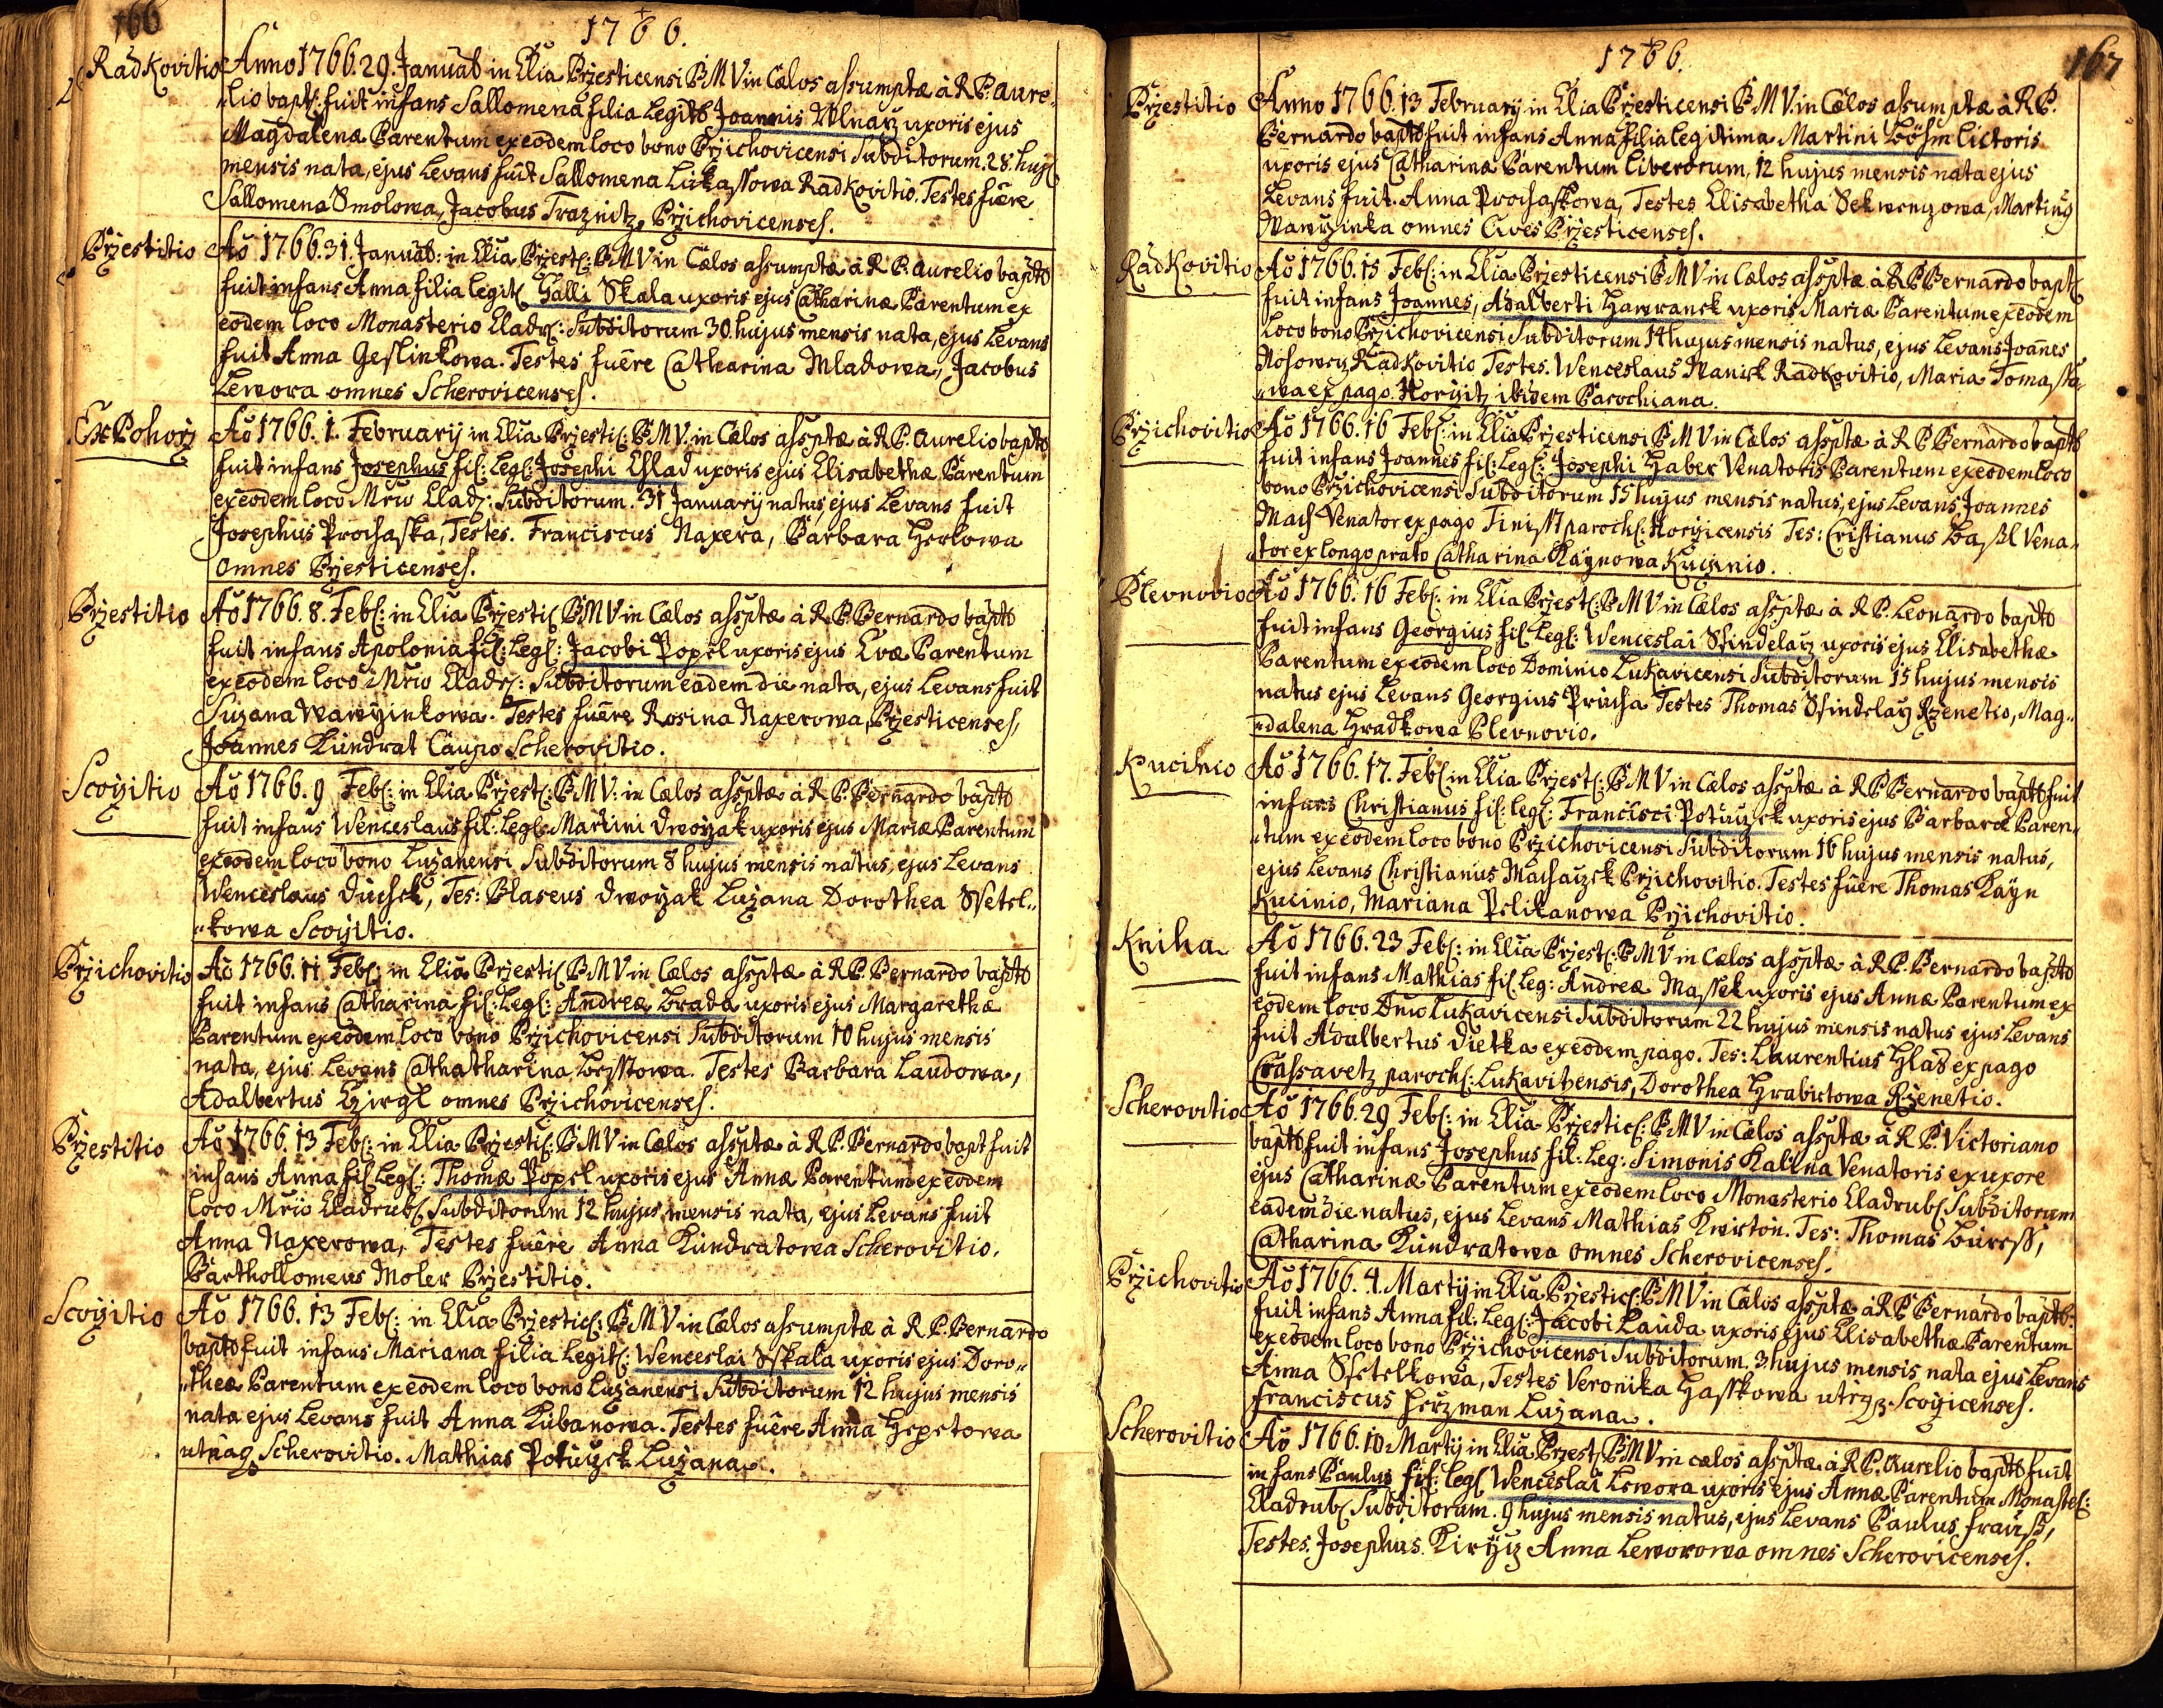 166
1766.
Radkovitio Anno 1766. 29. Januar in Ecclia Przesticensi B M V in Cælos assumptæ à R P. Aure„
„lio bapt: fuit infans Sallomena filia Legit Joannis Wlnarz uxoris ejus
Magdalenæ Parentum ex eodem loco bono Przichovicensi Subditorum. 28. huj
mensis nata, ejus Levans fuit Sallomena Lukassowa Radkovitio. Testes fuere
Sallomena Smolowa, Jacobus Traznitz, Przichovicenses.
Przestitio Aõ 1766. 31. Januar: in Eclia Przest: B M V in Cælos assumptæ à R P. Aurelio bapt
fuit infans Anna filia legit Galli Skala uxoris ejus Catharinæ Parentum ex
eodem loco Monasterio Cladr: Subditorum 30 hujus mensis nata, ejus Levans
fuit Anna Geslinkowa. Testes fuere Catharina Mladowa, Jacobus
Lewora omnes Scherovicenses.
Ex Pohorz Aõ 1766. 1. February in Eclia Przesti: B M V. in Cælos assptæ à R P. Aurelio bapt
fuit infans Josephus fil: Leg: Josephi Chlad uxoris ejus Elisabethæ Parentum
ex eodem loco Mrio Clad: Subditorum. 31 January natus, ejus Levans fuit
Josephus Prochaska, Testes. Franciscus Naxera, Barbara Herlowa
omnes Przesticenses.
Przestitio Aõ 1766. 8. Feb: in Eclia Przesti B M V in Cælos assptæ à R P. Bernardo bapt
fuit infans Apolonia fil: Leg: Jacobi Popel uxoris ejus Evæ Parentum
ex eodem loco Mrio Cladr: Subditorum eadem die nata, ejus Levans fuit
Suzana Wawrzinkowa. Testes fuere Rosina Naxerowa Przesticenses,
Joannes Kundrat Caupo Scherovitio.
Scoczitio Aõ 1766. 9 Feb: in Eclia Przest: B M V: in Cælos assptæ à R P. Bernardo bapt
fuit infans Wenceslaus fil: Leg: Martini Dworzak uxoris ejus Mariæ Parentum
ex eodem loco bono Luzanensi Subditorum 8 hujus mensis natus, ejus Levans
Wenceslaus Duchek, Tes: Blaseus Dworzak Luzana Dorothea Ssetel„
„kowa Scoczitio.
Przichovitio Aõ 1766. 11. Feb: in Eclia Przesti B M V in Cælos assptæ à R P. Bernardo bapt
fuit infans Catharina fil: Leg: Andreæ Brada uxoris ejus Margarethæ
Parentum ex eodem loco bono Przichovicensi Subditorum 10 hujus mensis
nata, ejus Levans Cathatharina Brzsstowa. Testes Barbara Laudowa,
Adalbertus Girgl omnes Przichovicenses.
Przestitio Aõ 1766. 13 Feb: in Eclia Przesti: B M V in Cælos assptæ à R P. Bernardo bapt fuit
infans Anna fil Leg: Thomæ Popel uxoris ejus Annæ Parentum ex eodem
loco Mrio Cladrub Subditorum 12 hujus mensis nata, ejus Levans fuit
Anna Naxerowa, Testes fuere Anna Kundratowa Scherovitio.
Barthollomeus Moler Przestitio.
Scoczitio Aõ 1766. 13 Feb: in Eclia Przestic: B M V in Cælos assumptæ à R. P. Bernardo
bapt fuit infans Mariana filia Legit: Wenceslai Sskala uxoris ejus Doro„
„theæ Parentum ex eodem loco bono Luzanensi Subditorum 12 hujus mensis
nata ejus Levans fuit Anna Kubanowa. Testes fuere Anna Hepetowa
utraq Scherovitio. Mathias Potuczek Luzana.
1766.
167
Przestitio Anno 1766. 13 February in Eclia Przesticensi B M V. in Cælos asumptæ à R P.
Bernardo bapt fuit infans Anna filia legitima Martini Böhm lictoris
uxoris ejus Catharina Parentum Liberorum, 12 hujus mensis nata ejus
Levans fuit. Anna Prochaskowa, Testes Elisabetha Sekwenzowa, Martinus
Wawrzinka omnes Cives Przesticenses.
Radkovitio Aõ 1766. 15 Feb: in Eclia Przesticensi B M V in Cælos assptæ à R P Bernardo bapt
fuit infans Joannes, Adalberti Hawranek uxoris Mariæ Parentum ex eodem
Loco bono Przichovicensi Subditorum 14 hujus mensis natus, ejus Levans Joannes
Nosowcz Radkovitio Testes. Wenceslaus Wanick Radkovitio, Maria Tomasso„
„wa ex pago Horzitz ibidem Parochiana.
Przichovitio Aõ 1766. 16 Feb: in Eclia Przesticensi B M V in Cælos assptæ à R P Bernardo bapt
fuit infans Joannes fil: Leg: Josephi Haber Venatoris Parentum ex eodem loco
bono Przichovicensi Subditorum 15 hujus mensis natus, ejus Levans Joannes
Mach Venator ex pago Tinisst paroch: Horzicensis Tes: Cristianus Baßl Vena„
„tor ex longo prato Catharina Kaynowa Kucinio.
Plevnovio Aõ 1766. 16 Feb: in Eclia Przest: B M V in Cælos assptæ à R P. Leonardo bapt
fuit infans Georgius fil Leg: Wenceslai Ssindelarz uxoris ejus Elisabethæ
Parentum ex eodem loco Dominio Lukavicensi Subditorum 15 hujus mensis
natus ejus Levans Georgius Prucha Testes Thomas Ssindelarz Rzenetio, Mag„
„dalena Hradkowa Plevnovio.
Kucinio Aõ 1766. 17. Feb in Eclia Przest: B M V in Cælos assptæ à R P Bernardo bapt fuit
infans Christianus fil: Leg: Francisci Potuczek uxoris ejus Barbaræ Paren„
„tum ex eodem loco bono Przichovicensi Subditorum 16 hujus mensis natus,
ejus Levans Christianus Machaczek Przichovitio. Testes fuere Thomas Kayn
Kucinio, Mariana Pelikanowa Przichovitio.
Kniha Aõ 1766. 23 Feb: in Eclia Przest: B M V in Cælos assptæ à R P. Bernardo bapt
fuit infans Mathias fil Leg: Andreæ Massek uxoris ejus Annæ Parentum ex
eodem loco Dnio Lukavicensi Subditorum 22 hujus mensis natus ejus Levans
fuit Adalbertus Dietka ex eodem pago. Tes: Laurentius Hlad ex pago
Crassavetz paroch: Lukavitzensis, Dorothea Hrabietowa Rzenetio.
Scherovitio Aõ 1766. 29 Feb: in Eclia Przestic: B M V in Cælos assptæ à R P. Victoriano
bapt fuit infans Josephus fil: Leg: Simonis Kalina Venatoris ex uxore
ejus Catharinæ Parentum ex eodem loco Monasterio Cladrub Subditorum
eadem die natus, ejus Levans Mathias Kwirton. Tes: Thomas Bureß,
Catharina Kundratowa omnes Scherovicenses.
Przichovitio Aõ 1766. 4. Marty in Eclia Przestic: B M V in Cælos assptæ à R P Bernardo bapt:
fuit infans Anna fil: Leg: Jacobi Lauda uxoris ejus Elisabethæ Parentum
ex eodem loco bono Przichovicensi Subditorum. 3 hujus mensis nata ejus Levans
Anna Ssetelkowa, Testes Veronika Hasskowa utrq Scoczicenses.
Franciscus Herzman Luzana.
Scherovitio Aõ 1766. 10 Marty in Eclia Przest B M V in cælos assptæ à R P. Aurelio bapt fuit
infans Paulus fil: Leg Wenceslai Lewora uxoris ejus Annæ Parentum Monaster:
Cladrub Subditorum. 9 hujus mensis natus, ejus Levans Paulus Frauß,
Testes. Josephus Kiryiz Anna Leworowa omnes Scherovicenses.